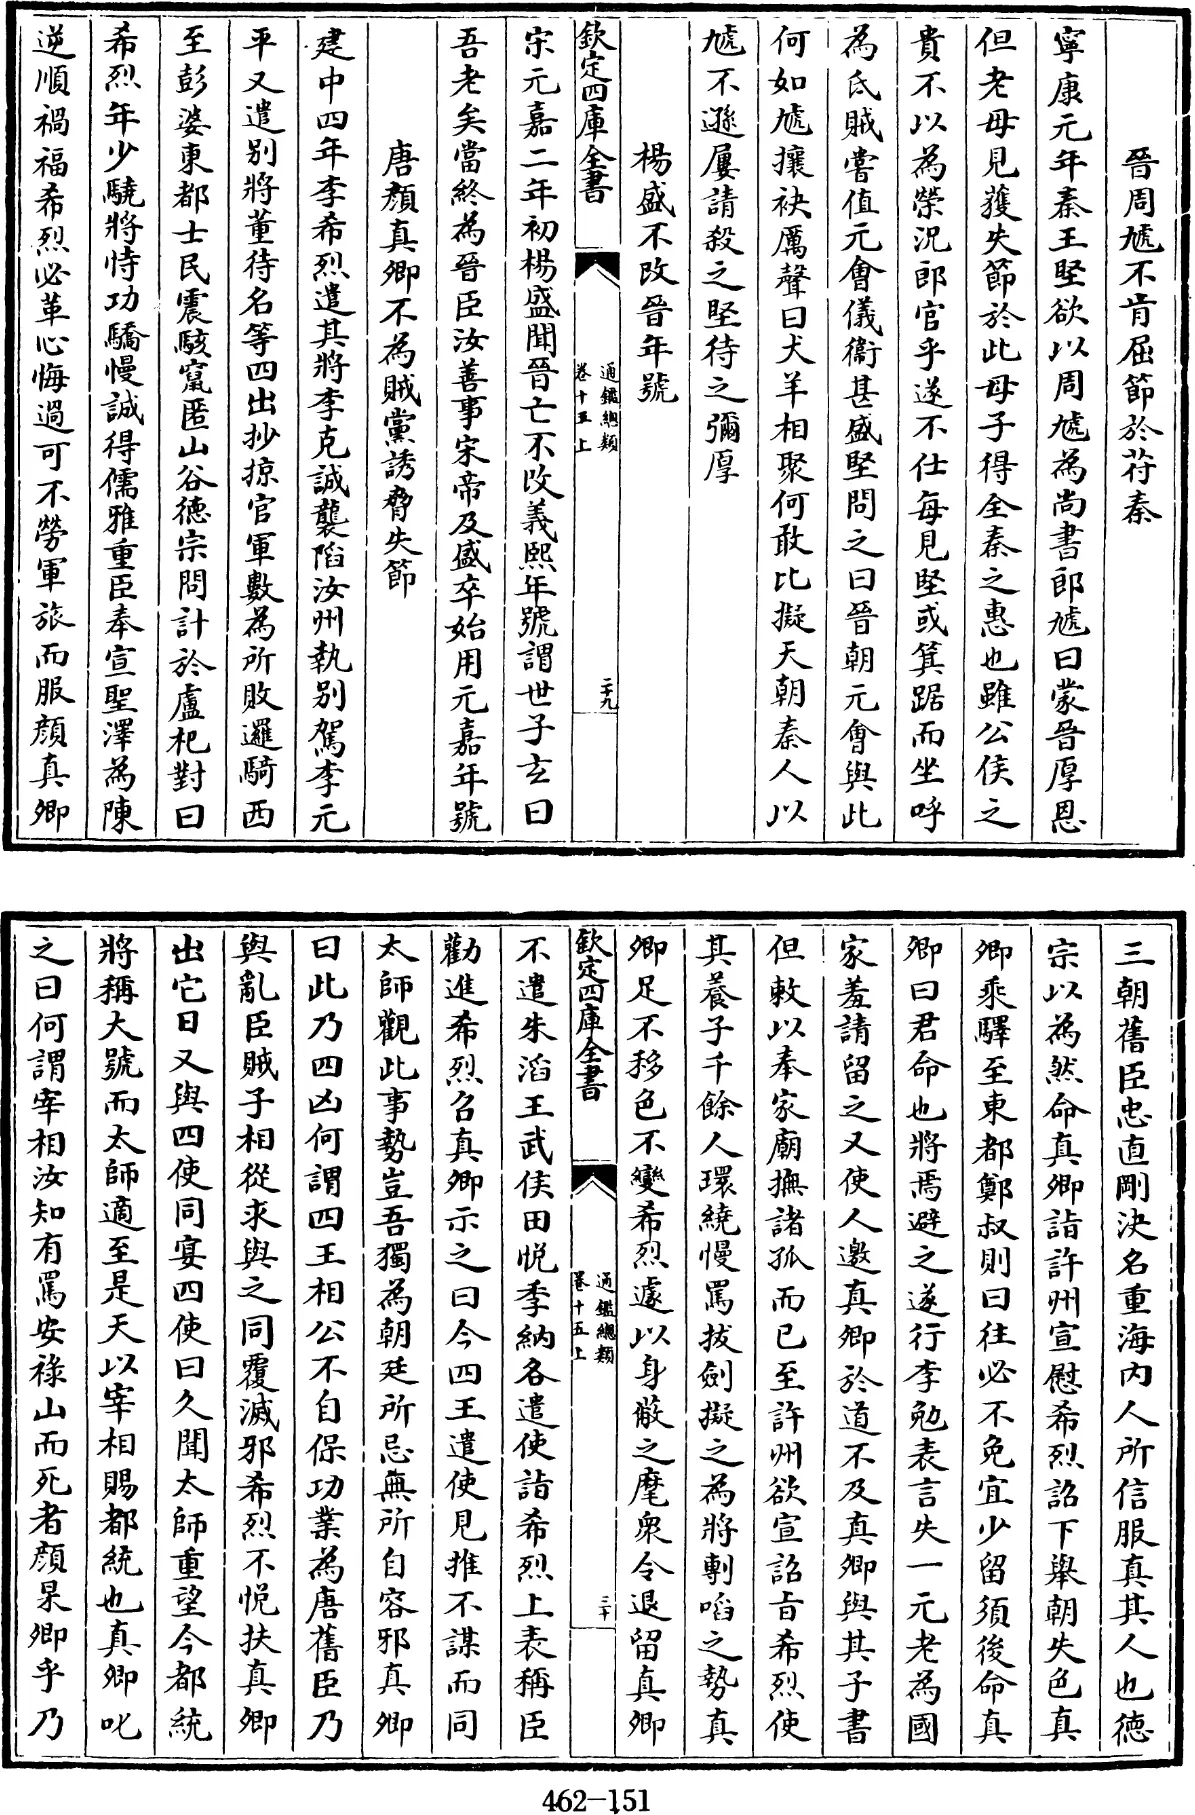 晉周虓不肯屈節於苻秦
寧康元年秦王堅欲以周虓為尚書郎虓曰蒙晉厚恩
但老母見獲失節於此母子得全秦之惠也雖公侯之
貴不以為榮況郎官乎遂不仕每見堅或箕踞而坐呼
為氐賊嘗值元會儀衞甚盛堅問之曰晉朝元會與此
何如虓攘袂厲聲曰犬羊相聚何敢比擬天朝秦人以
虓不遜屢請殺之堅待之彌厚
楊盛不改晉年號
欽定四庫全書
通鑑總類
卷十五上
二十九
宋元嘉二年初楊盛聞晉亡不改義熙年號謂世子玄曰
吾老矣當終為晉臣汝善事宋帝及盛卒始用元嘉年號
唐顏真卿不為賊黨誘脅失節
建中四年李希烈遣其將李克誠襲陷汝州執别駕李元
平又遣别將董待名等四出抄掠官軍數為所敗邏騎西
至彭婆東都士民震駭竄匿山谷德宗問計於盧杞對曰
希烈年少驍將恃功驕慢誠得儒雅重臣奉宣聖澤為陳
逆順禍福希烈必革心悔過可不勞軍旅而服顏真卿
三朝舊臣忠直剛決名重海內人所信服真其人也德
宗以為然命真卿詣許州宣慰希烈詔下舉朝失色真
卿乘驛至東都鄭叔則曰往必不免宜少留須後命真
卿曰君命也將焉避之遂行李勉表言失一元老為國
家羞請留之又使人邀真卿於道不及真卿與其子書
但敕以奉家廟撫諸孤而已至許州欲宣詔旨希烈使
其養子千餘人環繞慢罵拔劍擬之為將剸啗之勢真
卿足不移色不變希烈遽以身蔽之麾衆令退留真卿
欽定四庫全書
通鑑總類
卷十五上
三十
不遣朱滔王武俟田悅李納各遣使詣希烈上表稱臣
勸進希烈召真卿示之曰今四王遣使見推不謀而同
太師觀此事勢豈吾獨為朝廷所忌無所自容邪真卿
曰此乃四凶何謂四王相公不自保功業為唐舊臣乃
與亂臣賊子相從求與之同覆滅邪希烈不悅扶真卿
出它日又與四使同宴四使曰久聞太師重望今都統
將稱大號而太師適至是天以宰相賜都統也真卿叱
之曰何謂宰相汝知有罵安祿山而死者顏杲卿乎乃
462-151